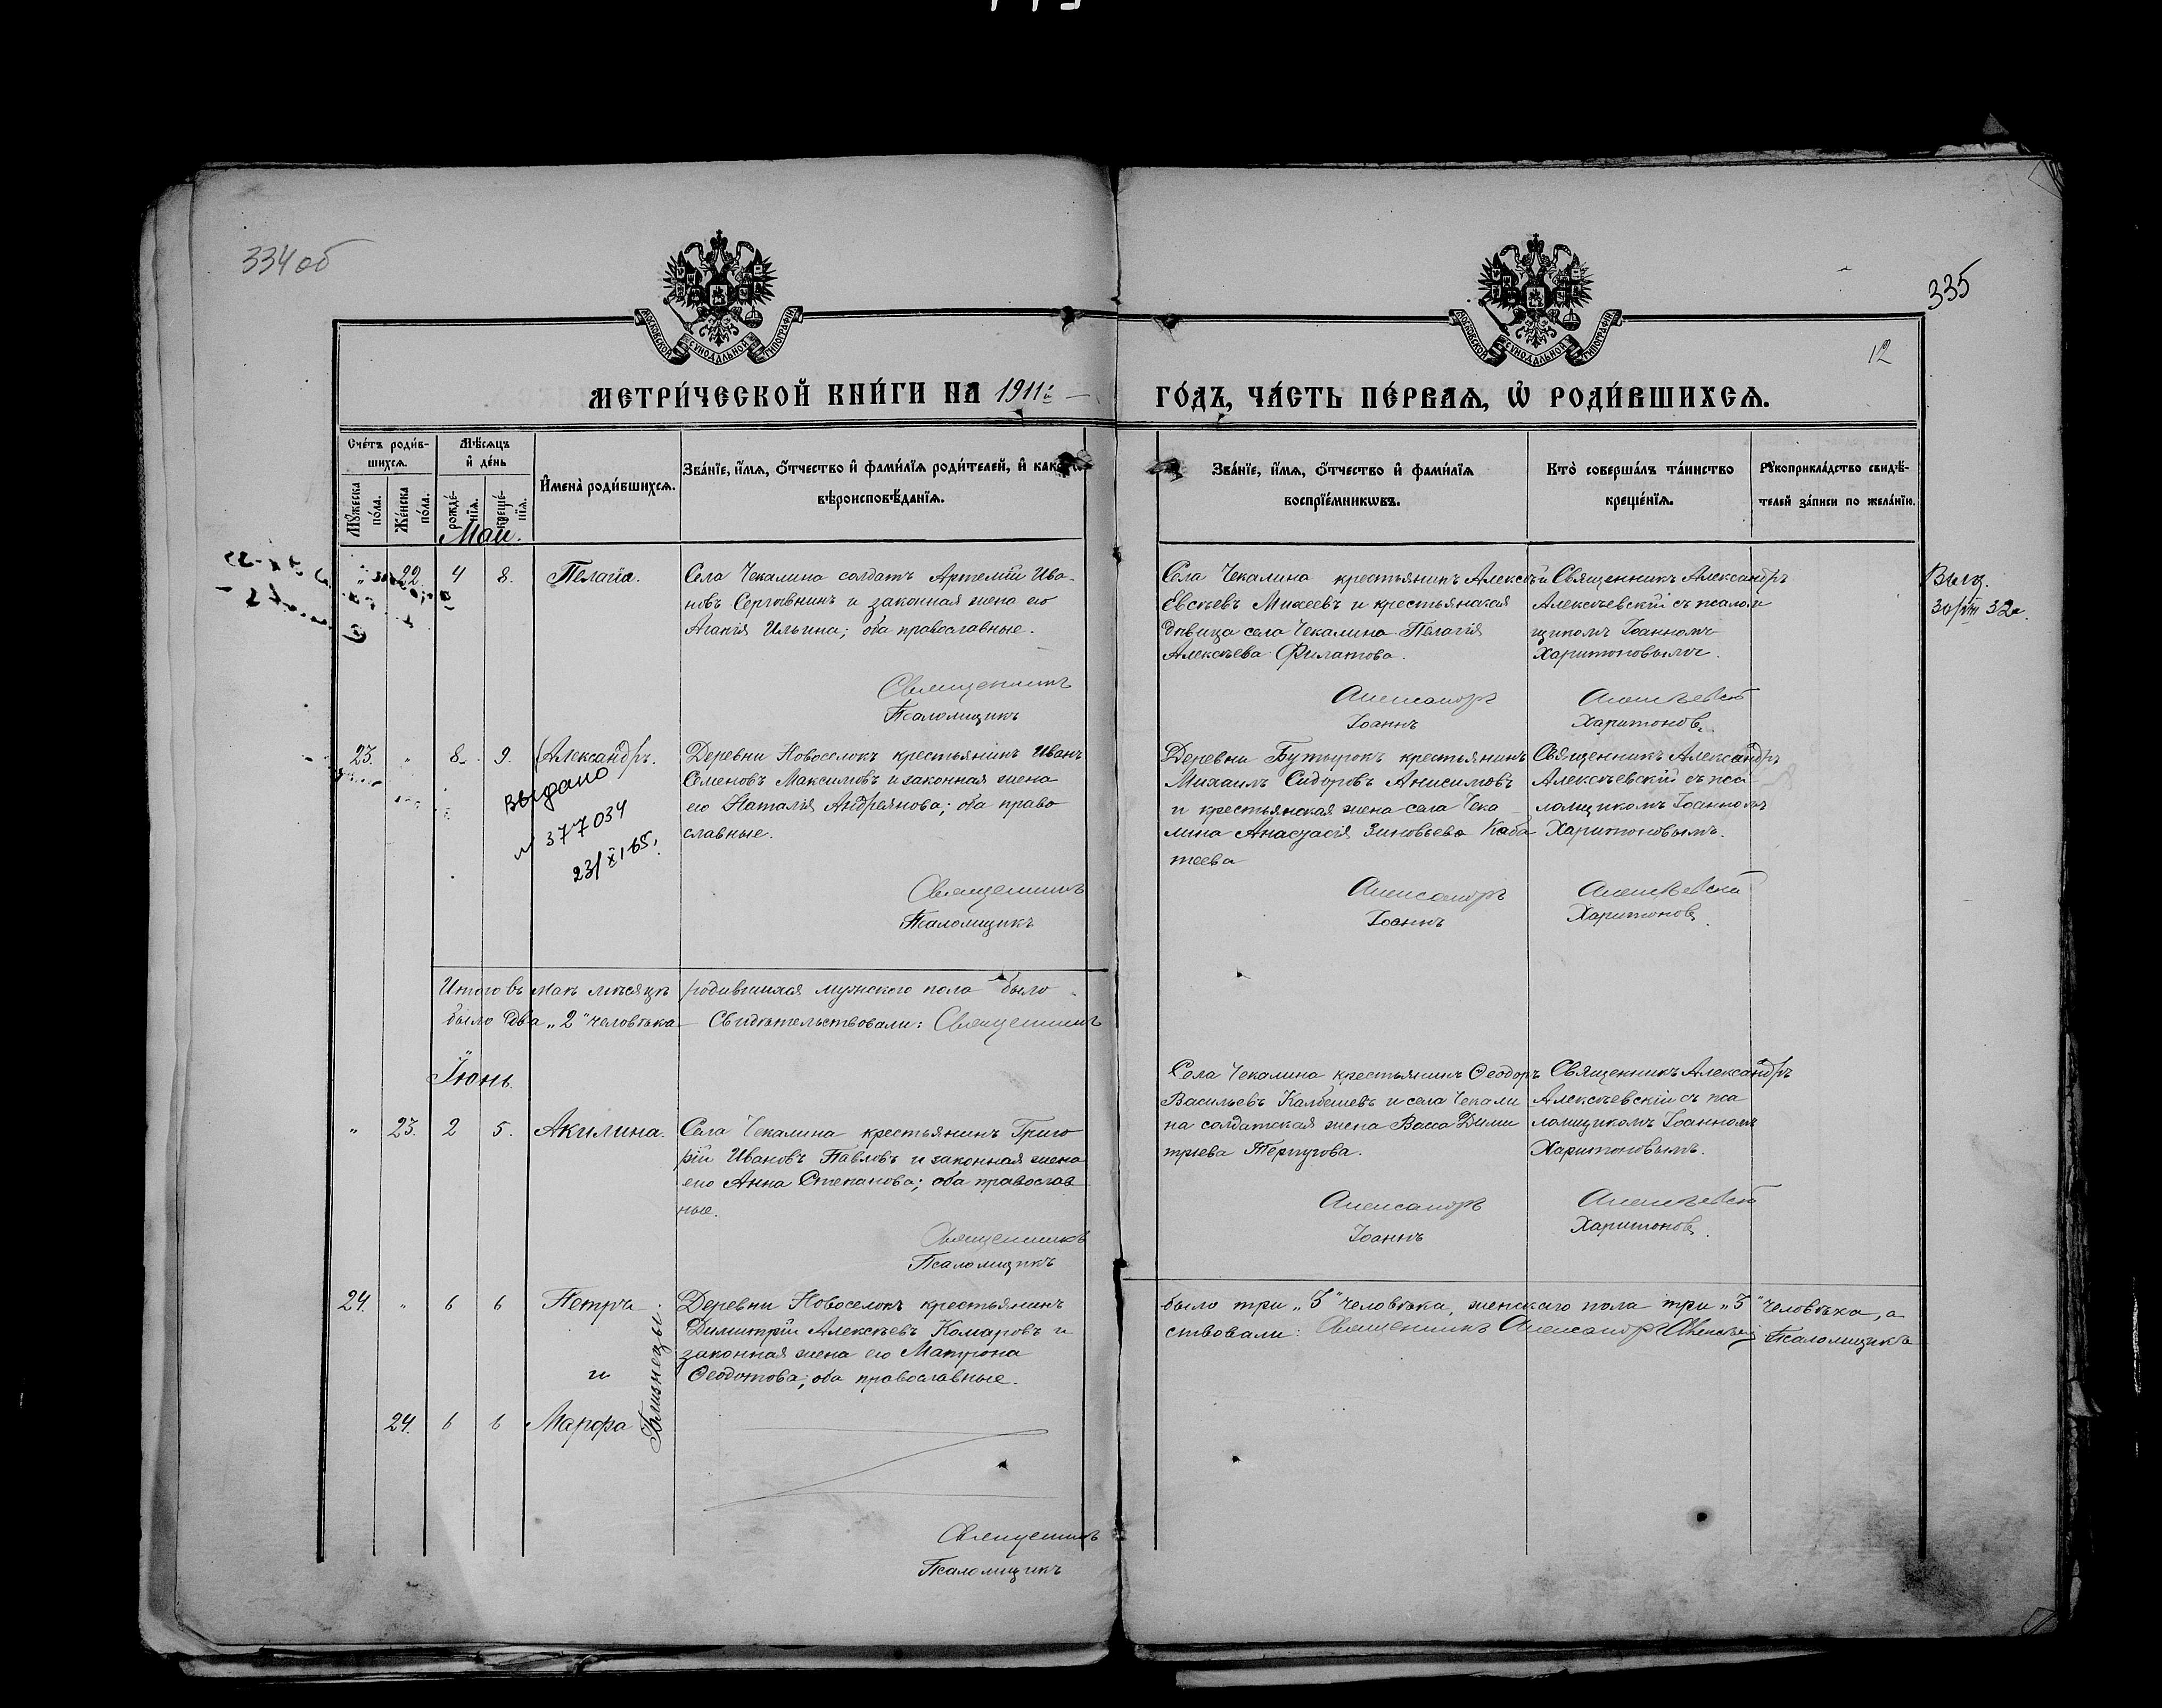 334 об
335
12
МОСКОВСКОЙ СУНОДАЛЬНОЙ ТИПОГРАФІИ
МОСКОВСКОЙ СУНОДАЛЬНОЙ ТИПОГРАФІИ
МЕТРИ́ЧЕСКОЙ КНИ́ГИ НА 1911й
ГО́ДЪ, ЧА́СТЬ ПЕ́РВАѦ, Ѡ҆ РОДИ́ВШИХСѦ.
Сче́тъ роди́в-
шихсѧ.
Мѣ́сѧцъ
и҆ де́нь
Мꙋ́жеска
по́ла.
Же́нска
по́ла.
рожде́-
нїѧ.
креще́-
нїѧ.
И҆мена̀ роди́вшихсѧ.
Зва́нїе, и҆́мѧ, ѻ҆́тчество и҆ фами́лїѧ роди́телей, и҆
вѣроисповѣ́данїѧ.
Зва́нїе, и҆́мѧ, ѻ҆́тчество и҆ фами́лїѧ
воспрїе́мникѡвъ.
Кто̀ соверша́лъ та́инство
креще́нїѧ.
Рꙋкоприкла́дство свидѣ́-
телей за́писи по жела́нїю.
Май.
" 22. 4 8. Пелагіа.
Села Чекалина солдатъ Артемій Ива-
новъ Сергѣвнинъ и законная жена его
Агапія Ильина; оба православные.
Священникъ
Псаломщикъ
Села Чекалина крестьянинъ Алексѣй
Евсѣевъ Михеевъ и крестьянская
дѣвица села Чекалина Пелагія
Алексѣева Филатова.
Александръ
Іоаннъ
Священникъ Александръ
Алексѣевскій съ псалом
щикомъ Іоанномъ
Харитоновымъ.
Алексѣевскій
Харитоновъ.
Выд.
30/VIII 32г.
23. " 8. 9. Александръ.
выдано
№ 377034
23/XI 65.
Деревни Новоселокъ крестьянинъ Иванъ
Семеновъ Максимовъ и законная жена
его Наталія Андреянова; оба право
славные.
Священникъ
Псаломщикъ
Деревни Бутырокъ крестьянинъ
Михаилъ Сидоровъ Анисимовъ
и крестьянская жена села Чека
лина Анастасія Зиновьева Каба
теева
Александръ
Іоаннъ
Священникъ Александръ
Алексѣевскій съ пса
ломщикомъ Іоанномъ
Харитоновымъ.
Алексѣевскій
Харитоновъ.
Итого въ маѣ мѣсяцѣ родившихся мужского пола было
было два „2" человѣка Свидѣтельствовали: Священникъ
Іюнь.
" 23. 2 5. Акилина.
Села Чекалина крестьянинъ Григо
рій Ивановъ Павловъ и законная жена
его Анна Степанова; оба православ
ные.
Священникъ
Псаломщикъ
Села Чекалина крестьянинъ Ѳеодоръ
Васильевъ Калбешевъ и села Чекали
на солдатская жена Васса Дими
тріева Терпугова.
Александръ
Іоаннъ
Священникъ Александръ
Алексѣевскій съ пса
ломщикомъ Іоанномъ
Харитоновымъ.
Алексѣевскій
Харитоновъ.
24. " 6 6 Петръ
и
24. 6 6 Марфа
Близнецы.
Деревни Новоселокъ крестьянинъ
Димитрій Алексѣевъ Комаровъ и
законная жена его Матрона
Ѳеодотова; оба православные.
Священникъ
Псаломщикъ
было три „3" человѣка, женскаго пола три „3" человѣка, а
ствовали: Священникъ Александръ Псаломщикъ